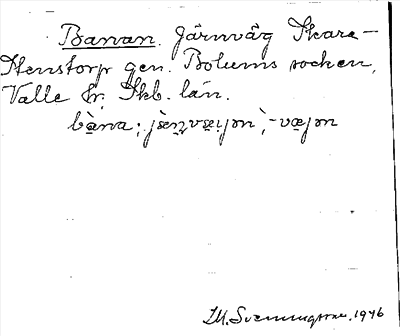 Banan. Järnväg Skara-
Stenstorp gen. Bolums socken,
Valle hr, Skb. län.
bàna; jæ̀ɳvæɩjən, -væjən
M. Svenningsson. 1946